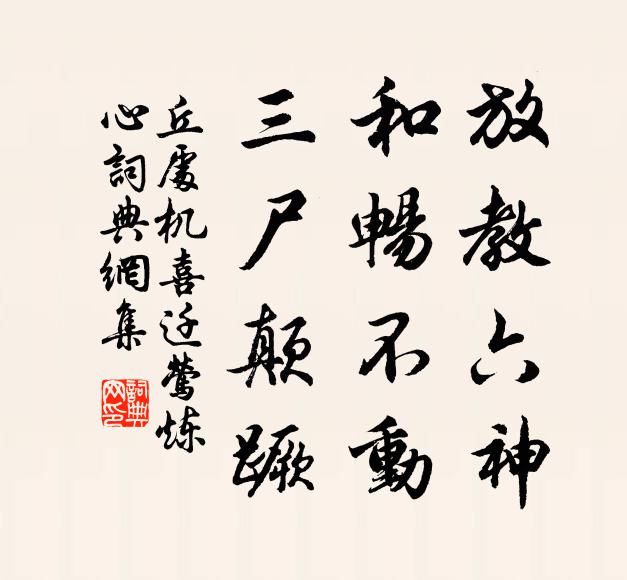 放教六神
和暢不動
三尸顛蹶
丘處机喜迁鶯炼
心詞典網集
詞典網印